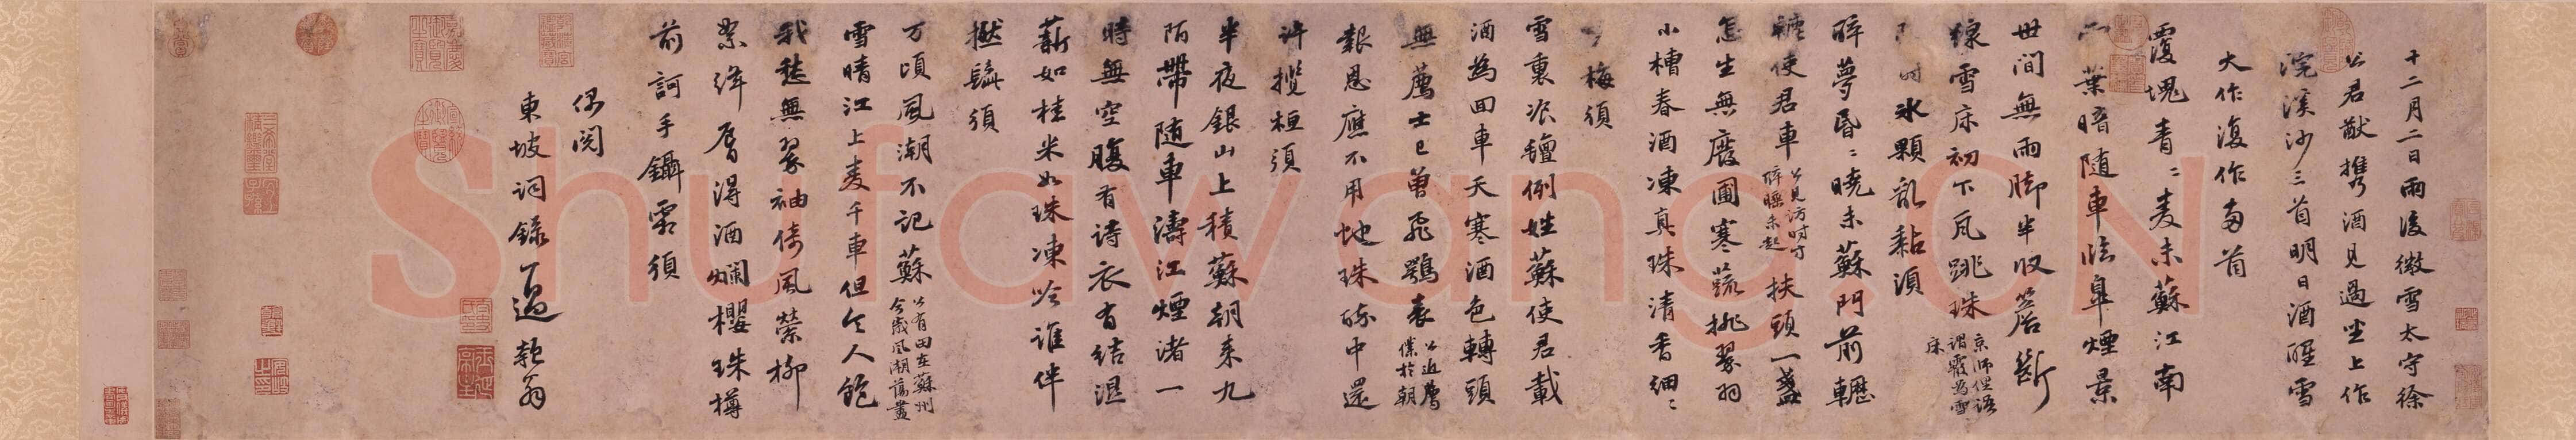 十二月二日雨後微雪太守徐
公君猷攜酒見過坐上作
浣溪沙三首明日酒醒雪
大作復作兩首
覆塊青〻麥未蘇江南
葉暗隨車臨皋煙景
世間無雨腳半收簷斷
線雪床初下瓦跳珠京師俚語謂霰為雪床
時冰顆亂黏湏
醉夢昏〻曉未蘇門前轣
轆使君車公見訪時方醉睡未起扶頭一盞
怎生無廢圃寒蔬挑翠羽
小槽春酒凍真珠清香細〻
梅須
雪裏飡氊例姓蘇使君載
酒為回車天寒酒色轉頭
無薦士已曾飛鶚表公近薦僕於朝
報恩應不用虵珠醉中還
許攬桓須
半夜銀山上積蘇朝來九
陌帶隨車濤江煙渚一
時無空腹有詩衣有結濕
薪如桂米如珠凍吟誰伴
撚髭須
万頃風潮不記蘇公有田在蘇州今歲風潮蕩盡
雪晴江上麥千車但令人飽
我愁無翠袖倚風縈柳
絮絳唇得酒爛櫻珠樽
前訶手鑷霜須
偶閱
東坡詞錄一過 乾翁
Shufawang.CN